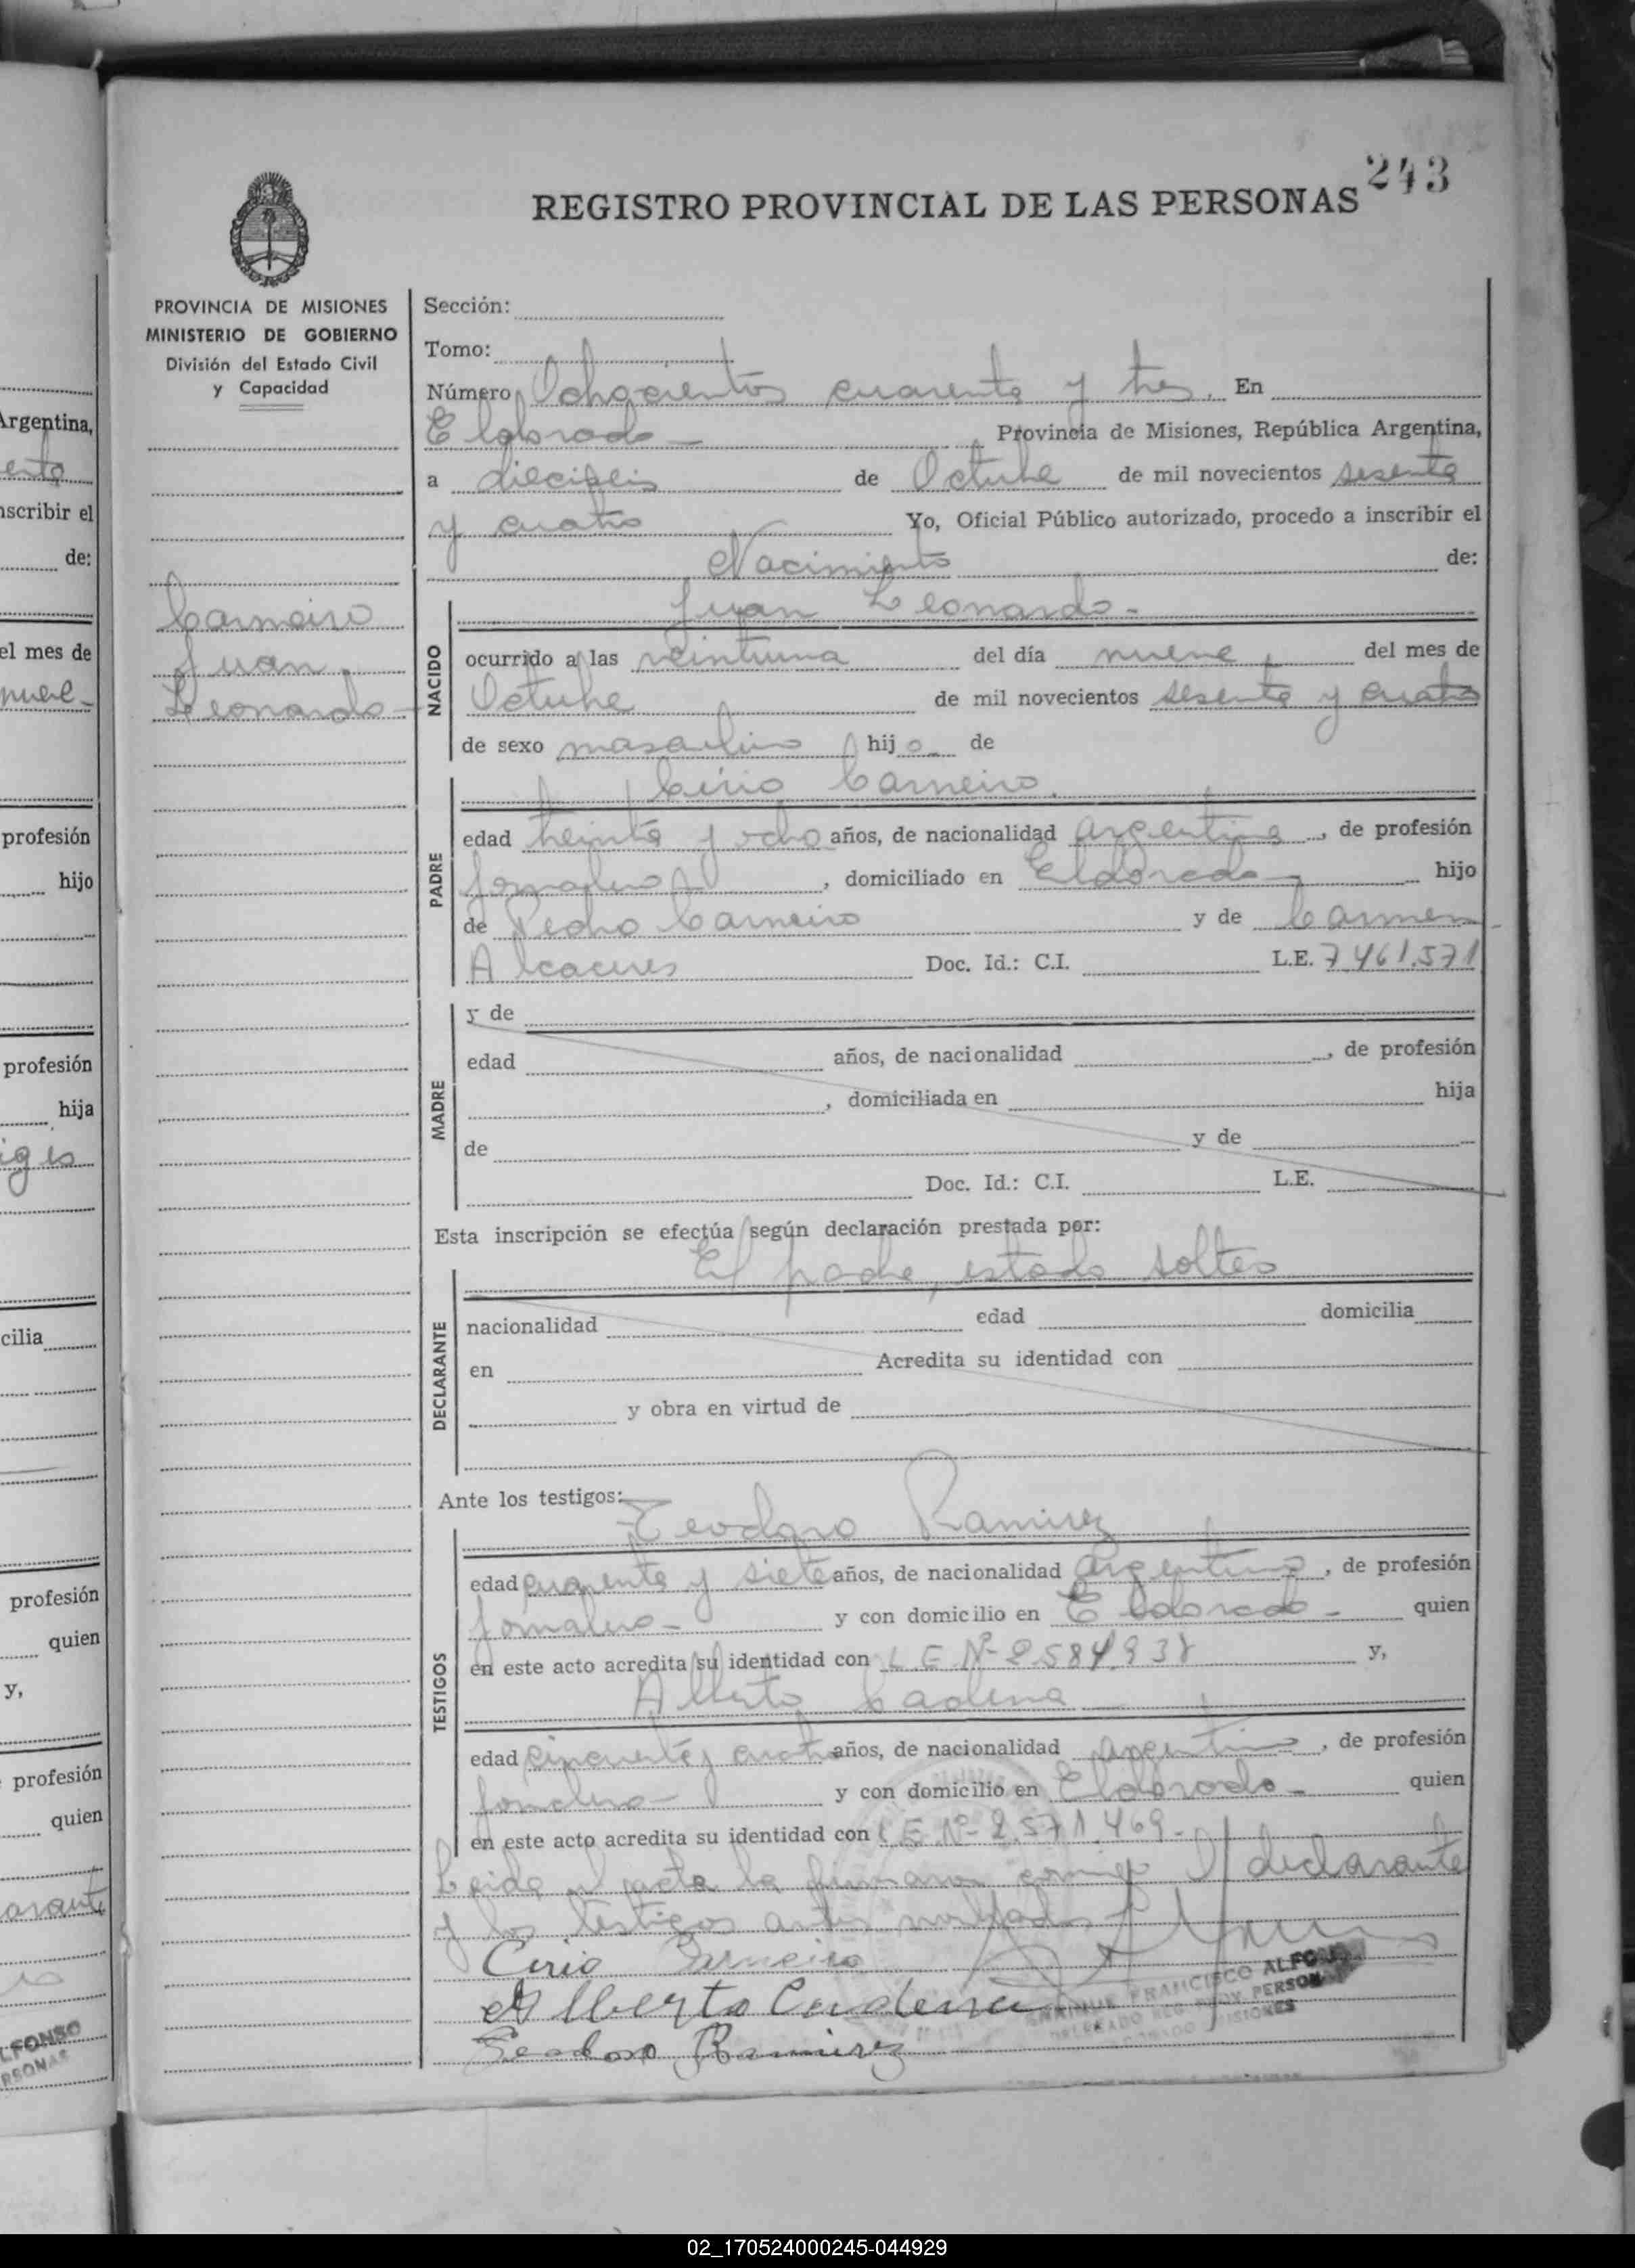 243
REGISTRO PROVINCIAL DE LAS PERSONAS
PROVINCIA DE MISIONES
MINISTERIO DE GOBIERNO
División del Estado Civil
y Capacidad
Carneiro
Juan
Leonardo
Sección:
Tomo:
Número Ochocientos cuarenta y tres. En
Eldorado - Provincia de Misiones, República Argentina,
a dieciséis de Octubre de mil novecientos sesenta
y cuatro Yo, Oficial Público autorizado, procedo a inscribir el
Nacimiento de:
Juan Leonardo-
NACIDO
ocurrido a las veintiuna del día nueve, del mes de
Octubre de mil novecientos sesenta y cuatro
de sexo masculino hijo de
Cirio Carneiro.
PADRE
edad treinta y ocho años, de nacionalidad argentina, de profesión
jornalero, domiciliado en Eldorado - hijo
de Pedro Carneiro y de Carmen
Alcaceres Doc. Id.: C.I. L.E. 7.461.571
MADRE
y de
edad años, de nacionalidad , de profesión
, domiciliada en hija
de y de
Doc. Id.: C.I. L.E.
Esta inscripción se efectúa según declaración prestada por:
El padre, estado soltero
DECLARANTE
nacionalidad edad domicilia
en Acredita su identidad con
y obra en virtud de
Ante los testigos:
Teodoro Ramirez
TESTIGOS
edad cuarenta y siete años, de nacionalidad argentino, de profesión
jornalero- y con domicilio en Eldorado - quien
en este acto acredita su identidad con L E Nº 2.584.938 y,
Alberto Cadena
edad cincuenta y cuatro años, de nacionalidad argentino, de profesión
jornalero- y con domicilio en Eldorado - quien
en este acto acredita su identidad con L E Nº 2.571.469-
Leida el acta la firmaron conmigo el declarante
y los testigos antes nombrados
Cirio Carneiro
Alberto Cadena
Teodoro Ramirez
ENRIQUE FRANCISCO ALFONSO
DELEGADO REG. PROV. PERSONAS
ELDORADO MISIONES
Argentina,
inscribir el
de:
el mes de
profesión
hijo
profesión
hija
cilia
profesión
quien
y,
profesión
quien
02_170524000245-044929